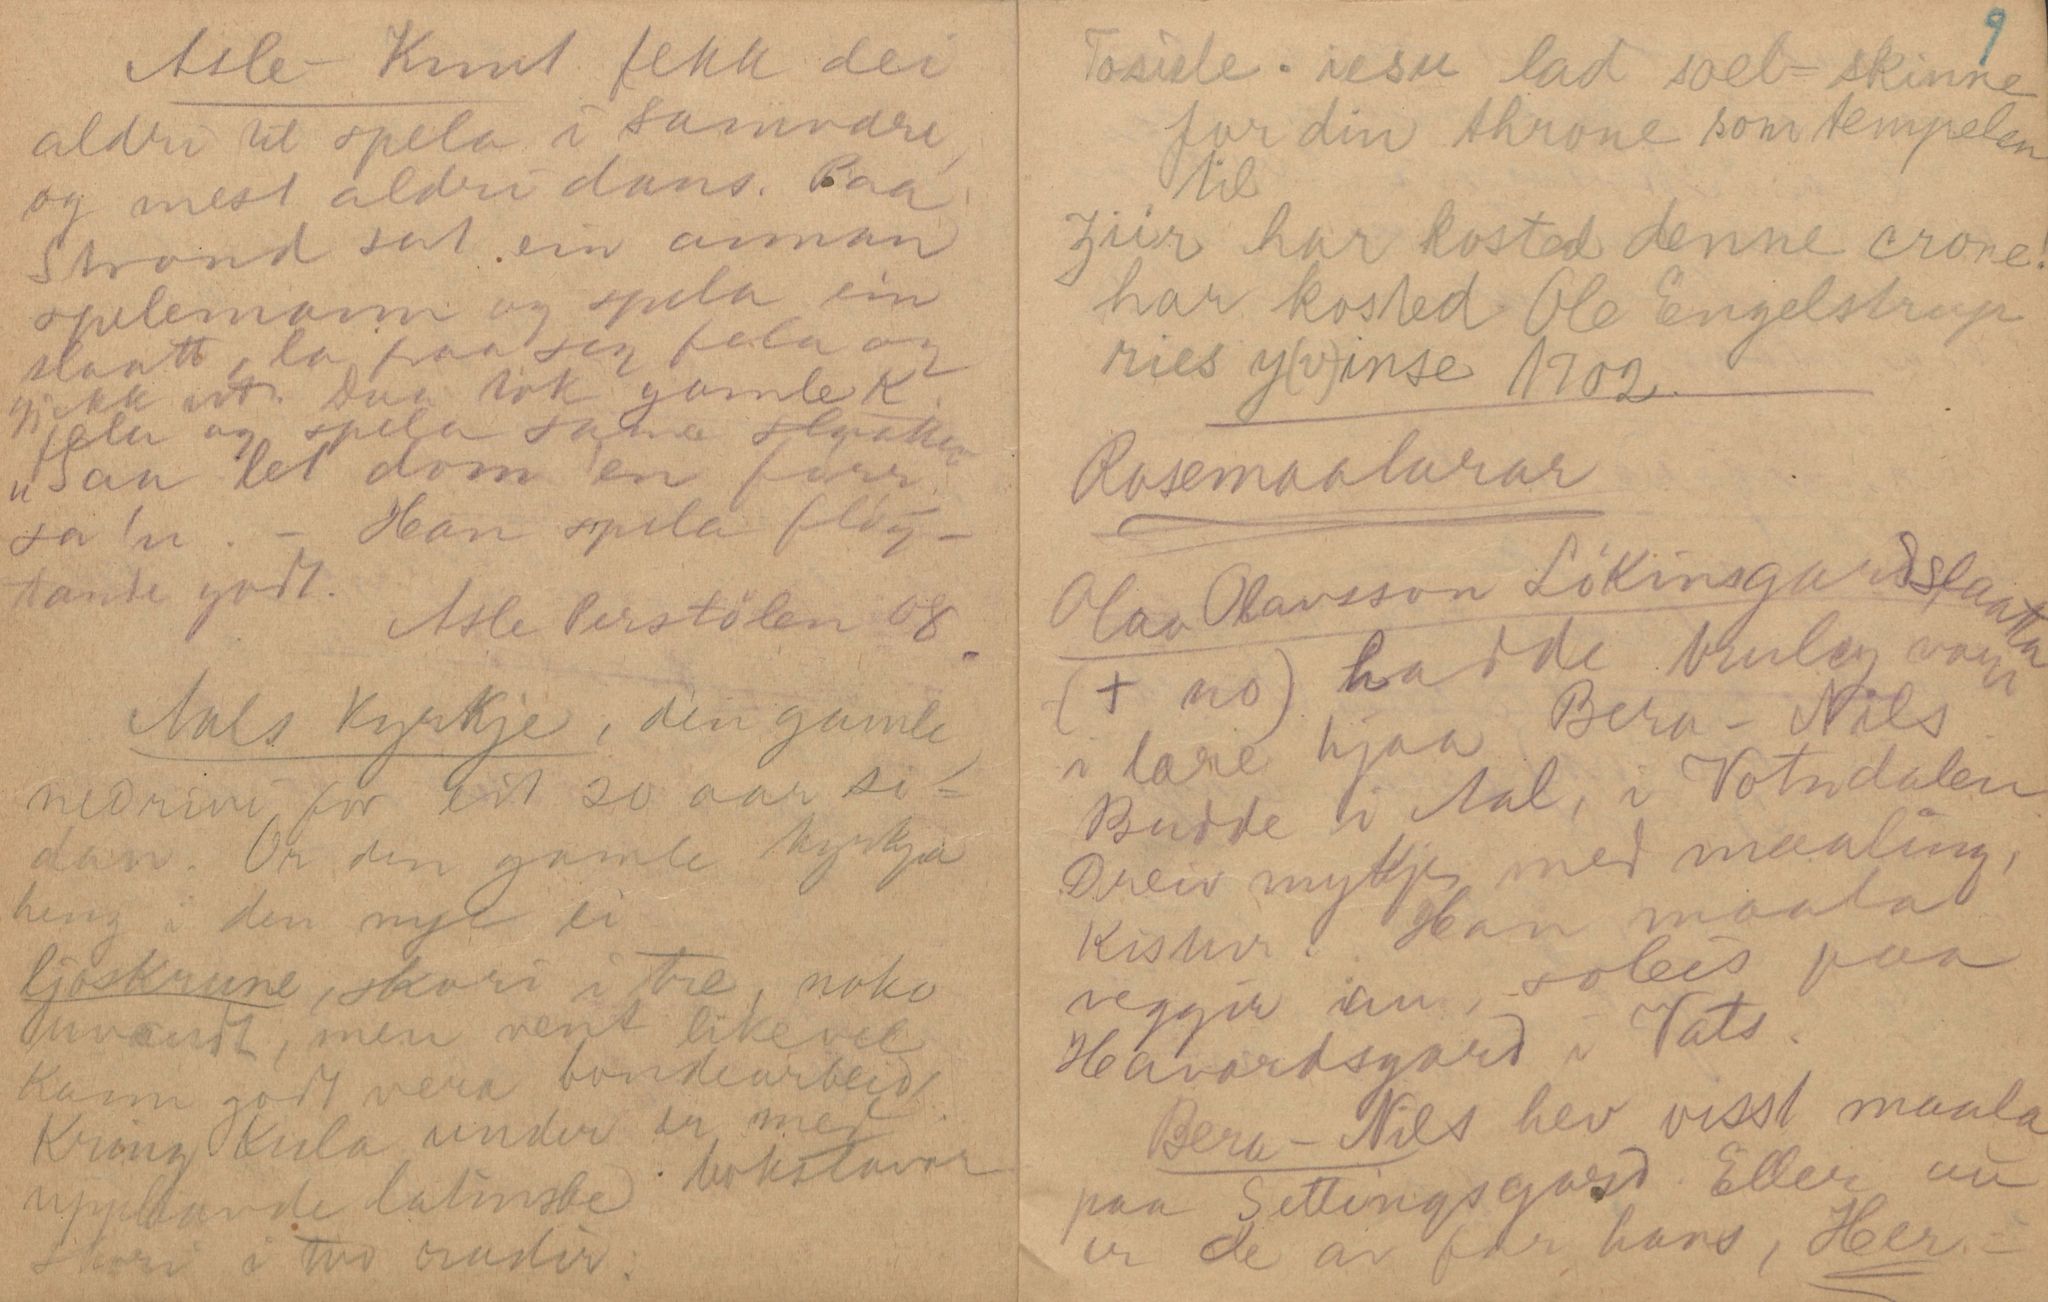 Asle-Knut fekk dei
aldri til spela i samvære,
og mest aldri dans. Paa
Strond sat ein annan
spelemann og spela ein
slaatt, la fraa seg fela og
gjekk ut. Daa tok gamle K.
fela og spela same slaatten
"Saa let dom en fürr
sa'n. - Han spela fløy-
tande godt.
Asle Perstölen 08.
Aals Kyrkje, den gamle
nedrivi for eit 20 aar si-
dan. Or den gamle kyrkja
heng i den nye ei
ljoskrune, skori i tre, noko
uvandt, men vent likevel
Kann godt vera bondearbeid.
Kring Kula under er med
upphavde latinske bokstavar
skori i tvo rader:
9
Toside. iesu lad soel-skinne
for din throne som tempelen
til
Ziir har kosted denne crone!
har kosted Ole Engelstrup
ries y(v)inse 1702.
Rosemaalarar
Olav Olavsson Lökinsgard Slaatta
(+ no) hadde truleg vore
i lære hjaa Bera-Nils
Budde i Aal, i Votndalen
Dreiv mykje med maaling,
Kistur. Han maala
veggir au, soleis paa
Havardsgard i Vats.
Bera-Nils hev visst maala
paa Settingsgard. Eller au
er de av far hans, Her-